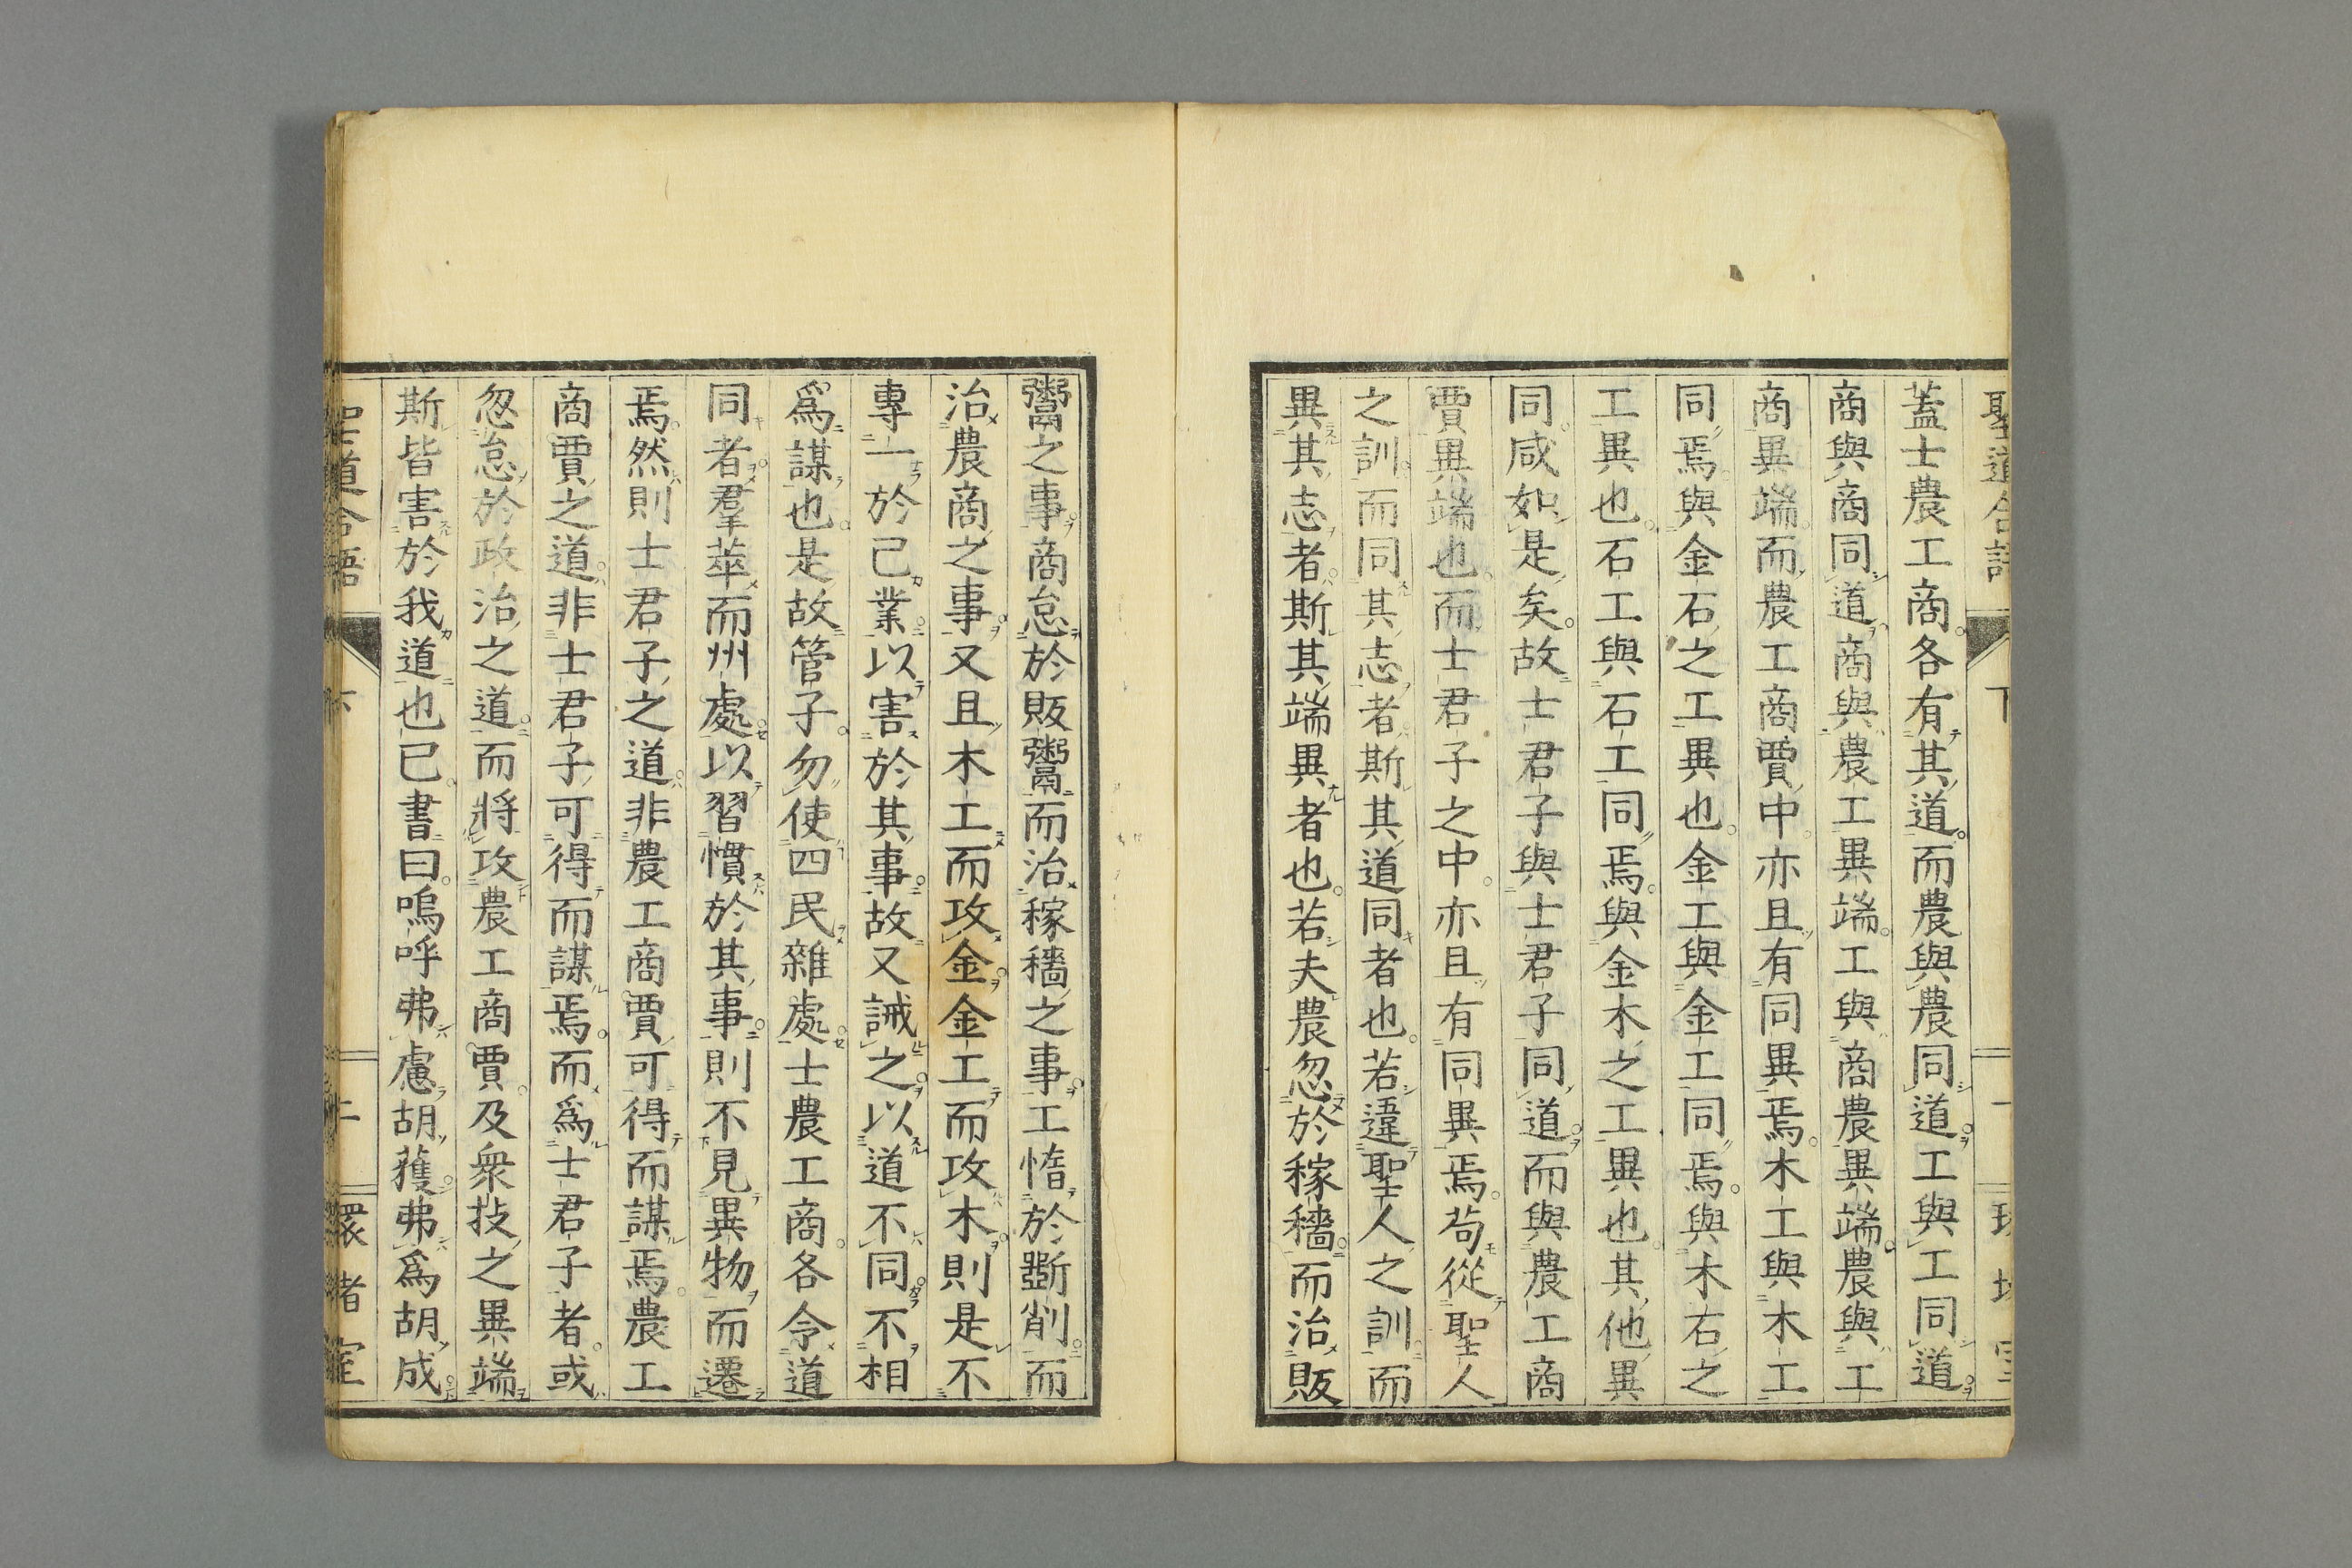 聖道合語 下 一
蓋士農工商各有其道而農與農同道工與工同道
商與商同道商與農工異端工與商農異端農與工
商異端而農工商賈中亦且有同異焉木工與木工
同焉與金石之工異也金工與金工同焉與木右之
工異也石工與石工同焉與金木之工異也其他異
同咸如是矣故士君子與士君子同道而與農工商
賈異端也而士君子之中亦且有同異焉苟從聖人
之訓而同其志者斯其道同者也若違聖人之訓而
異其志者斯其端異者也若夫農忽於稼穡而治販
鬻之事商怠於販鬻而治稼穡之事工惰於斲削而
治農商之事又且木工而攻金金工而攻木則是不
專一於己業以害於其事故又誡之以道不同不相
爲謀也是故管子勿使四民雜處士農工商各令道
同者羣萃而州處以習慣於其事則不見異物而遷
焉然則士君子之道非農工商賈可得而謀焉農工
商賈之道非士君子可得而謀焉而爲士君子者或
忽怠於政治之道而將攻農工商賈及衆技之異端
斯皆害於我道也已書曰嗚呼弗慮胡獲弗爲胡成
聖道合語 下 二 環堵室